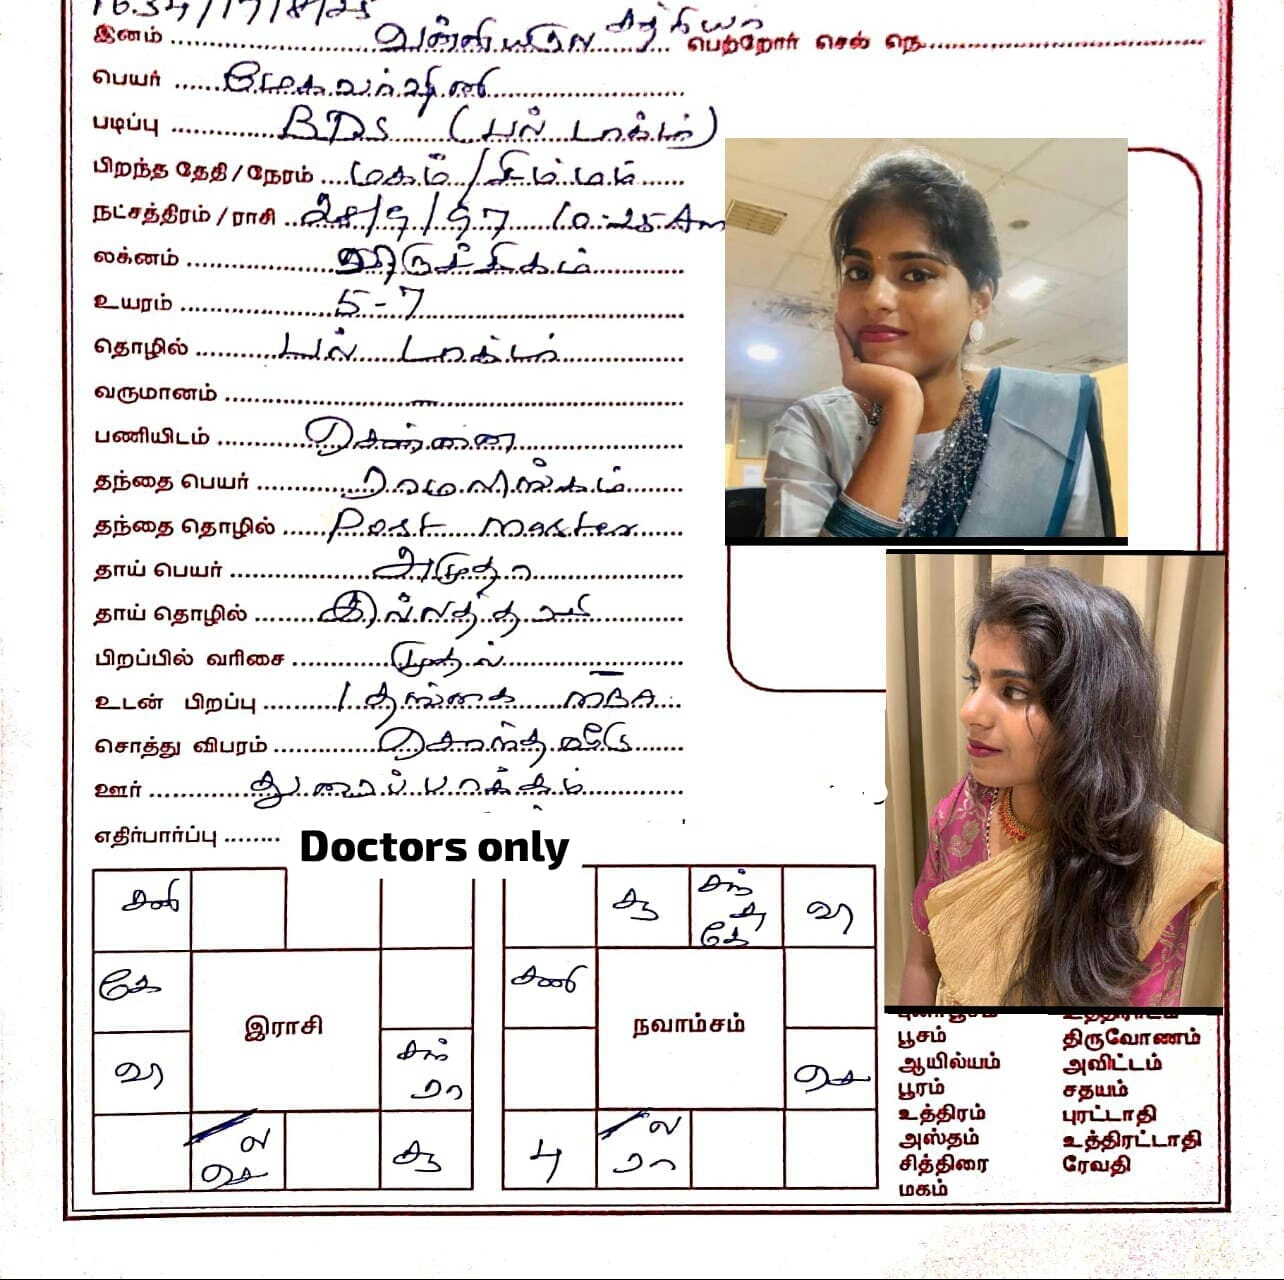 இனம் வன்னியகுல சத்ரியர் பெற்றோர் செல் நெ
பெயர்
படிப்பு BDS (பல் டாக்டர்)
பிறந்த தேதி / நேரம் மகம் / சிம்மம்
நட்சத்திரம் / ராசி 28/9/97 10.25 Am
லக்னம் விருச்சிகம்
உயரம் 5-7
தொழில் பல் டாக்டர்
வருமானம்
பணியிடம் சென்னை
தந்தை பெயர் ராமலிங்கம்
தந்தை தொழில் Post master
தாய் பெயர் அமுதா
தாய் தொழில் இல்லத்தரசி
பிறப்பில் வரிசை முதல்
உடன் பிறப்பு 1 தங்கை MBA
சொத்து விபரம் சொந்த வீடு
ஊர் துரைப்பாக்கம்
எதிர்பார்ப்பு Doctors only
சனி
கே
வி
இராசி
சந் ரா
ல செ
சூ
சூ
சந் சு கே
வி
சனி
நவாம்சம்
செ
பு
ல ரா
பூசம் திருவோணம்
ஆயில்யம் அவிட்டம்
பூரம் சதயம்
உத்திரம் புரட்டாதி
அஸ்தம் உத்திரட்டாதி
சித்திரை ரேவதி
மகம்